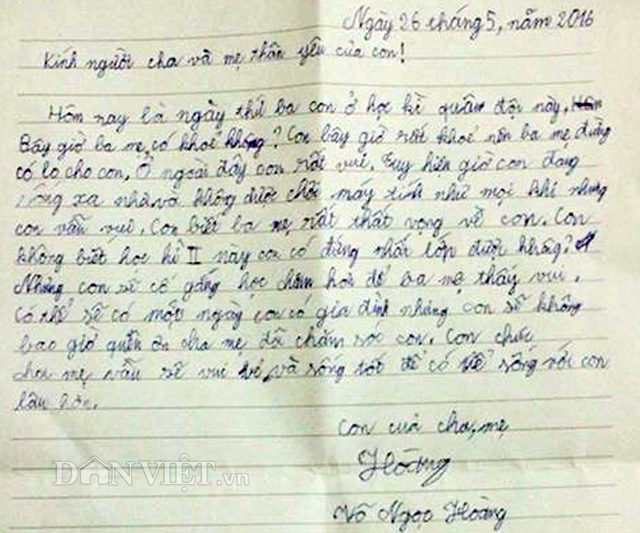 Ngày 26 tháng 5, năm 2016
Kính người cha và mẹ thân yêu của con!
Hôm nay là ngày thứ ba con ở học kì quân đội này.
Bây giờ ba mẹ có khoẻ không? Con bây giờ rất khoẻ nên ba mẹ đừng
có lo cho con. Ở ngoài đây con rất vui. Tuy hiên giờ con đang
sống xa nhà và không được chơi máy tính như mọi khi nhưng
con vẫn vui. Con biết ba mẹ rất thất vọng về con. Con
không biết học kì II này con có đứng nhất lớp được không?
Nhưng con sẽ cố gắng học chăm hơn để ba mẹ thấy vui.
Có thể sẽ có một ngày con có gia đình nhưng con sẽ không
bao giờ quên ơn cha mẹ đã chăm sóc con. Con chúc
cha mẹ vẫn sẽ vui vẻ và sống tốt để có thể sống với con
lâu hơn.
Con của cha, mẹ
Hoàng
Võ Ngọc Hoàng
DÂNVIỆT.vn